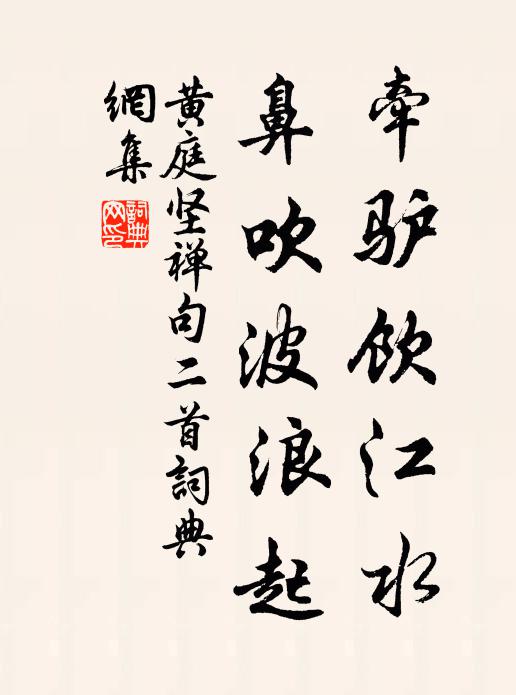 牵驴饮江水
鼻吹波浪起
黄庭坚禅句二首詞典
網集
詞典网印